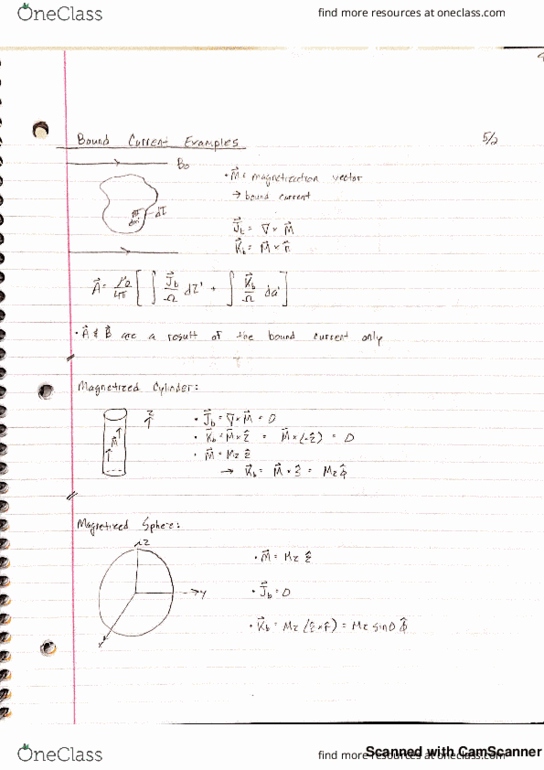 OneClass
find more resources at oneclass.com
Bound Current Examples
5/2
B₀
• M⃗ = magnetization vector
→ bound current
dm dτ
J⃗b = ∇ × M⃗
K⃗b = M⃗ × n̂
A⃗ = μ₀/4π [ ∫ J⃗b/r dτ' + ∫ K⃗b/r da' ]
• A⃗ & B⃗ are a result of the bound current only
Magnetized Cylinder:
M⃗
ẑ
• J⃗b = ∇ × M⃗ = 0
• K⃗b = M⃗ × ẑ = M⃗ × (-ẑ) = 0
• M⃗ = Mz ẑ
→ K⃗b = M⃗ × ŝ = Mz φ̂
Magnetized Sphere:
z
y
x
• M⃗ = Mz ẑ
• J⃗b = 0
• K⃗b = Mz (ẑ × r̂) = Mz sinθ φ̂
OneClass
find more resources at oneclass.com
Scanned with CamScanner